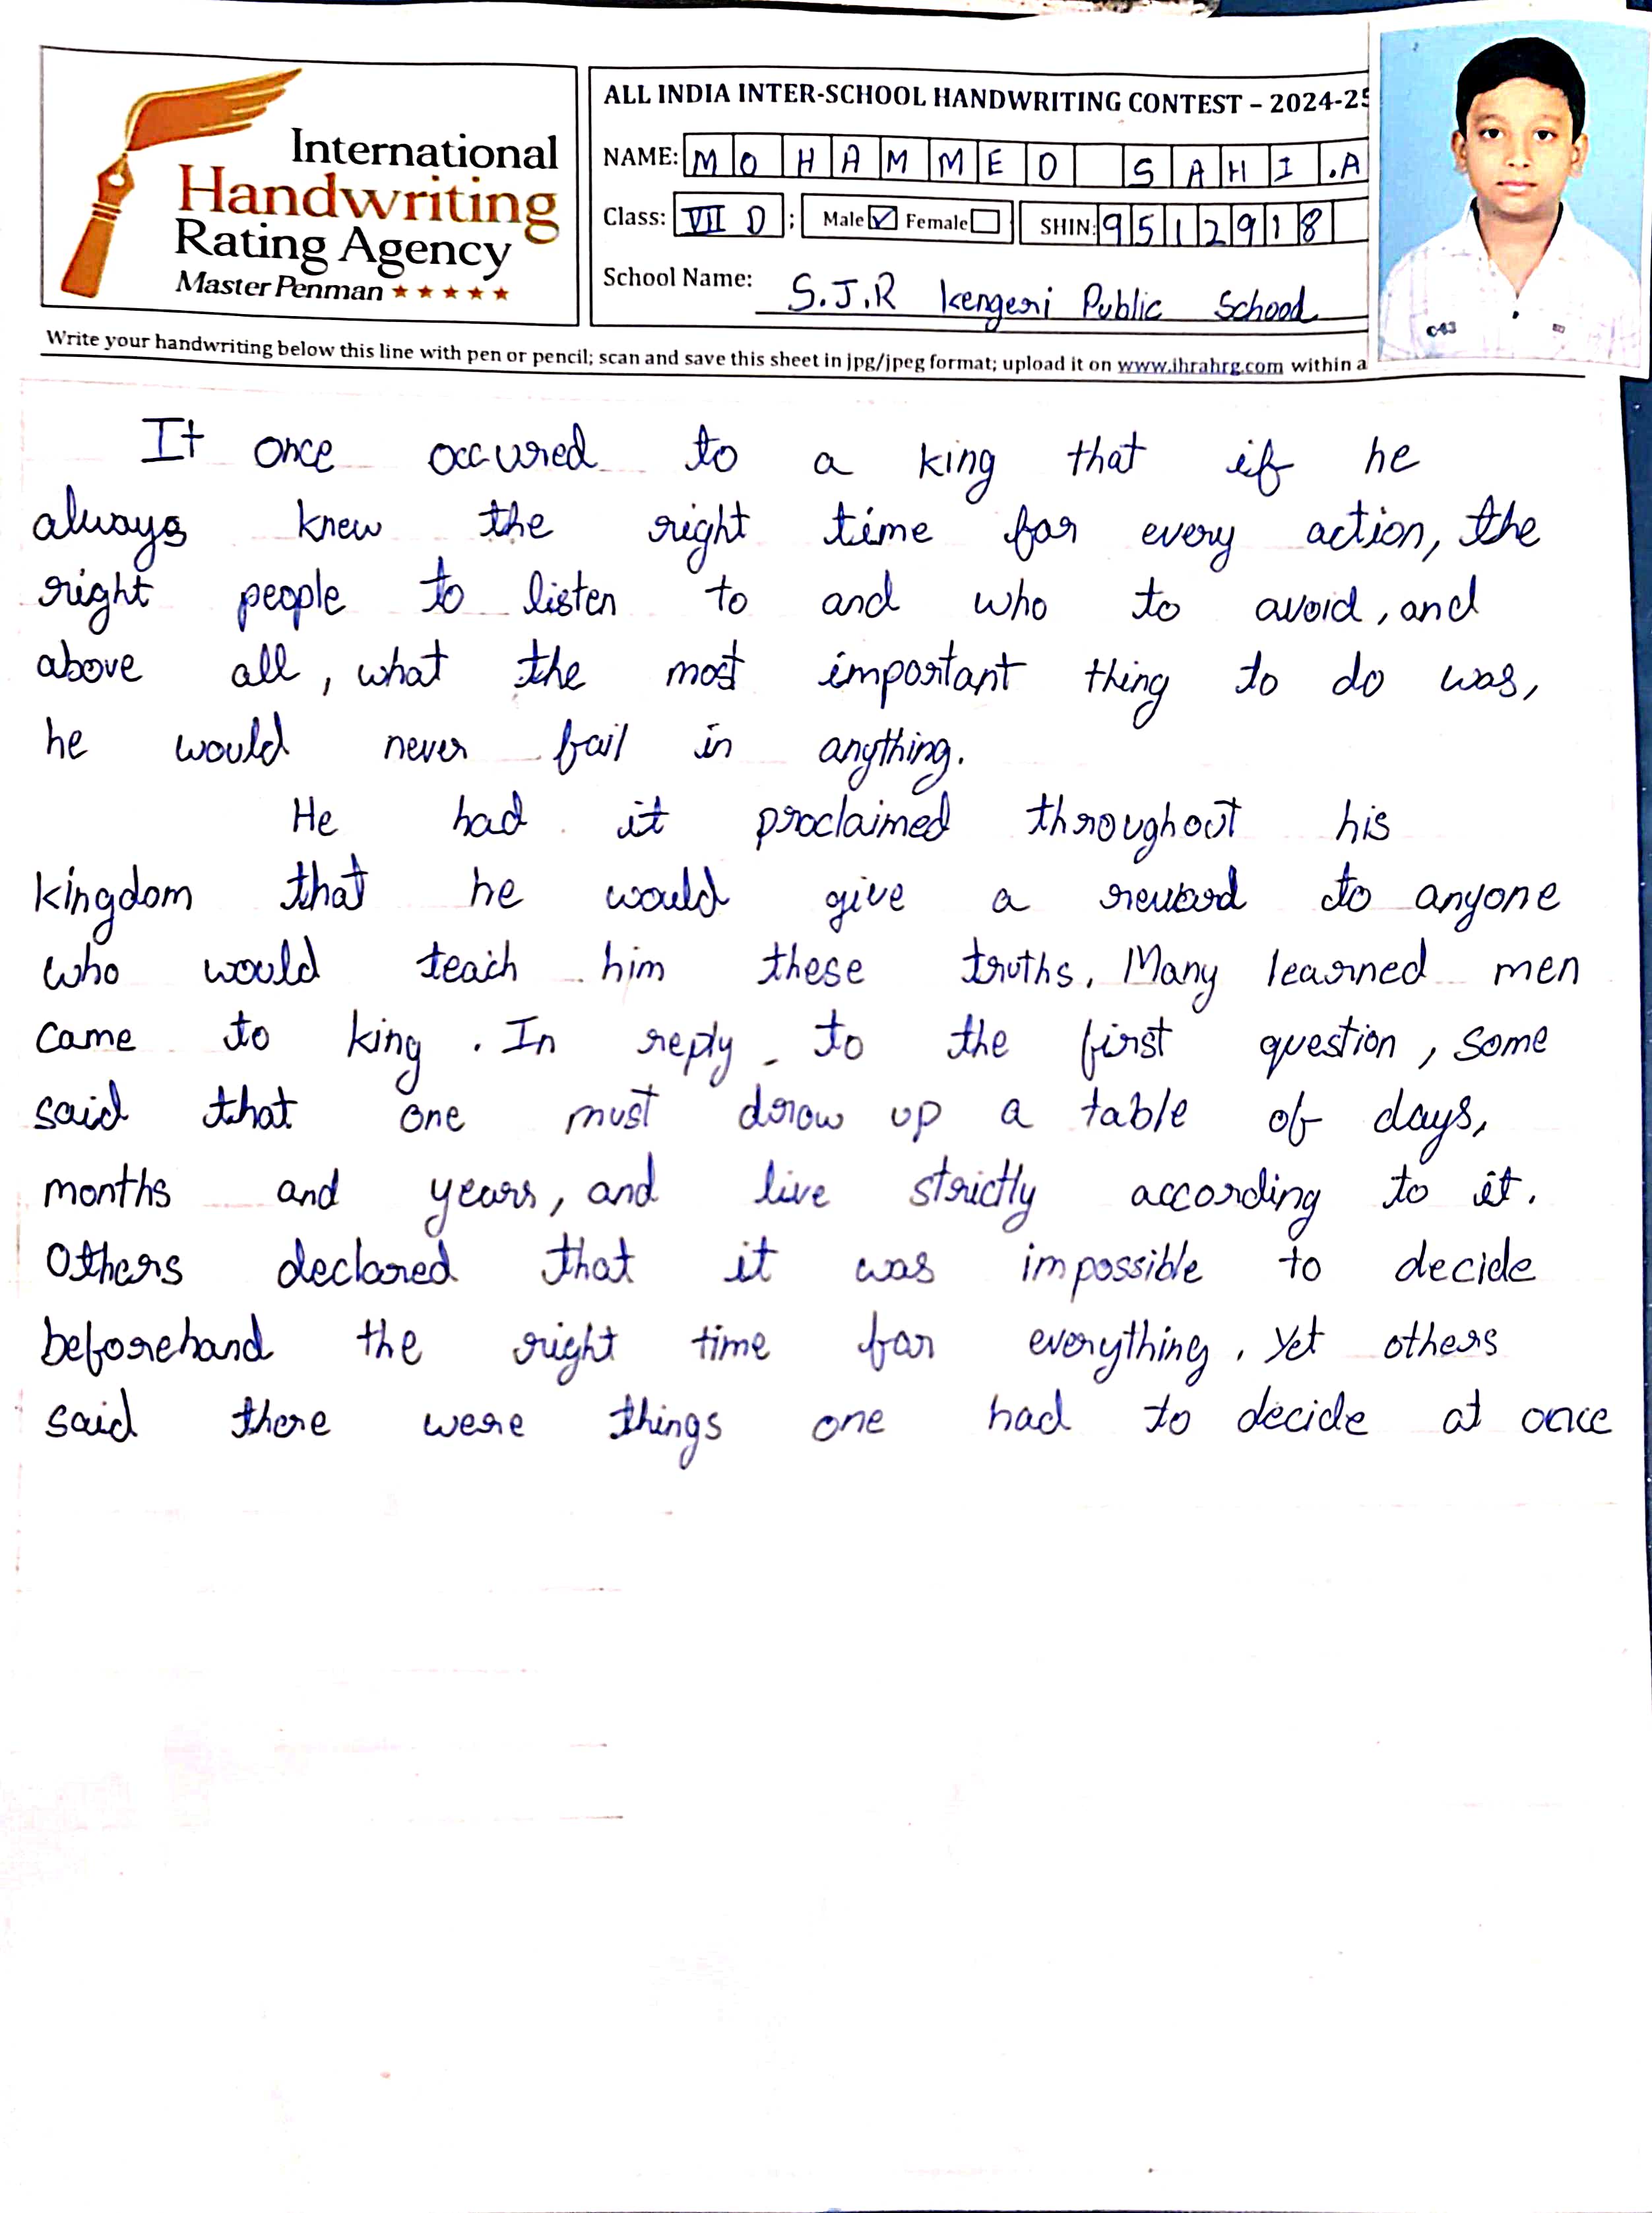 International
Handwriting
Rating Agency
Master Penman
ALL INDIA INTER-SCHOOL HANDWRITING CONTEST – 2024-25
NAME: MOHAMMED SAHI.A
Class: VII D ; Male ☑ Female ☐ SHIN: 9512918
School Name: S.J.R Kengeri Public School
Write your handwriting below this line with pen or pencil; scan and save this sheet in jpg/jpeg format; upload it on www.ihrahrg.com within a
It once occured to a king that if he
always knew the right time for every action, the
right people to listen to and who to avoid, and
above all, what the most important thing to do was,
he would never fail in anything.
He had it proclaimed throughout his
kingdom that he would give a reward to anyone
who would teach him these truths. Many learned men
came to king. In reply to the first question, some
said that one must draw up a table of days,
months and years, and live strictly according to it.
Others declared that it was impossible to decide
beforehand the right time for everything. Yet others
said there were things one had to decide at once